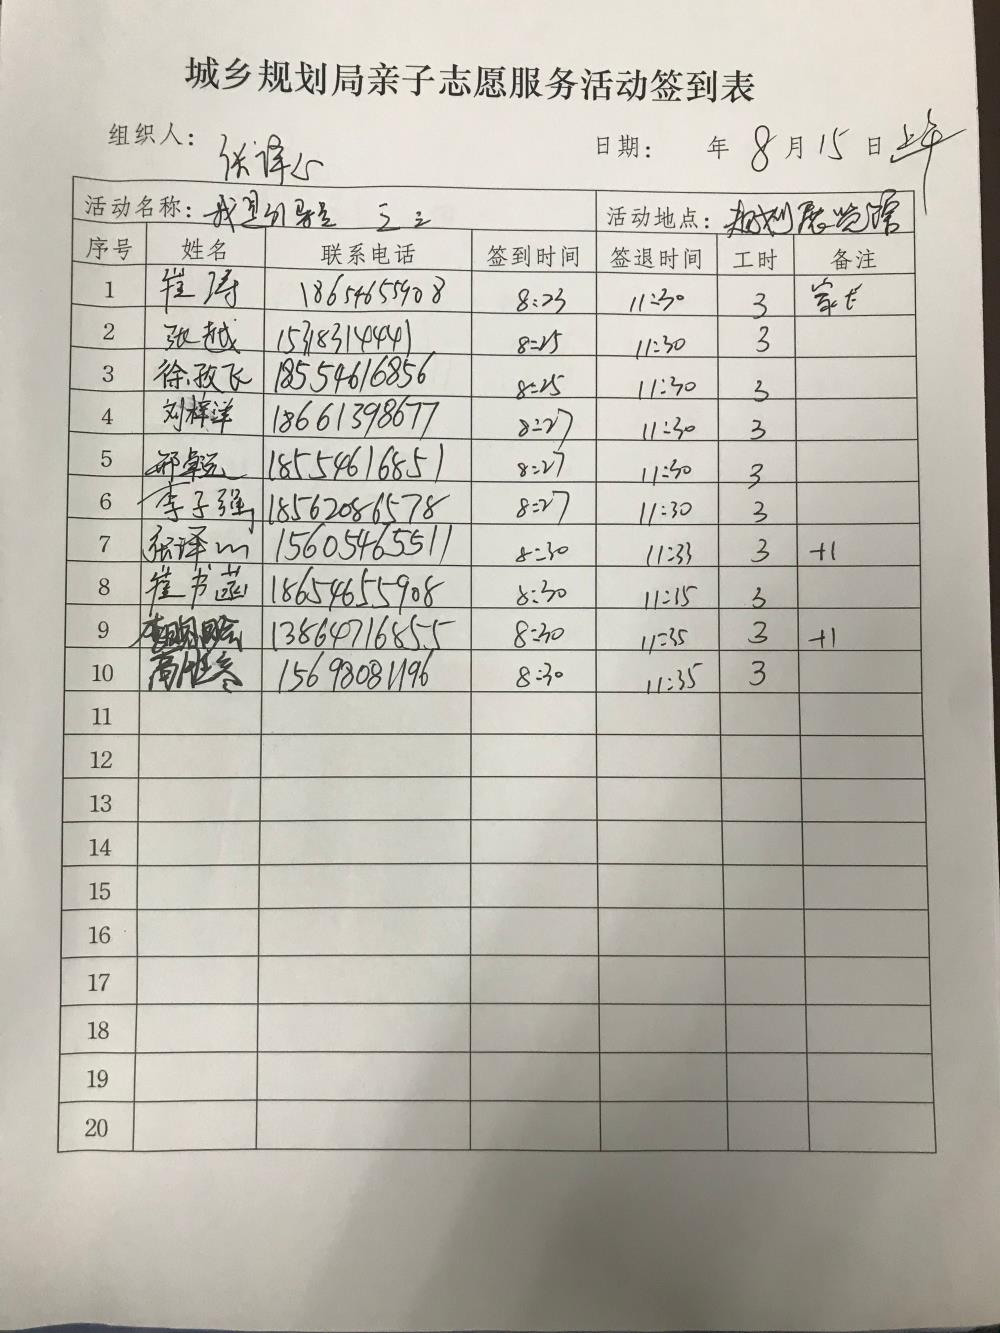 城乡规划局亲子志愿服务活动签到表
组织人: 张译心 日期: 年 8 月 15 日 上午
活动名称: 我是引导员 活动地点: 规划展览馆
序号 姓名 联系电话 签到时间 签退时间 工时 备注
1 崔涛 18654655908 8:23 11:30 3 家长
2 张越 15318314441 8:25 11:30 3
3 徐敬飞 18554616856 8:25 11:30 3
4 刘梓洋 18661398677 8:27 11:30 3
5 邢卓远 18554616851 8:27 11:30 3
6 李子强 18562086578 8:27 11:30 3
7 张译心 15605465511 8:30 11:33 3 +1
8 崔书菡 18654655908 8:30 11:15 3
9 13864716855 8:30 11:35 3 +1
10 15698081196 8:30 11:35 3
11
12
13
14
15
16
17
18
19
20